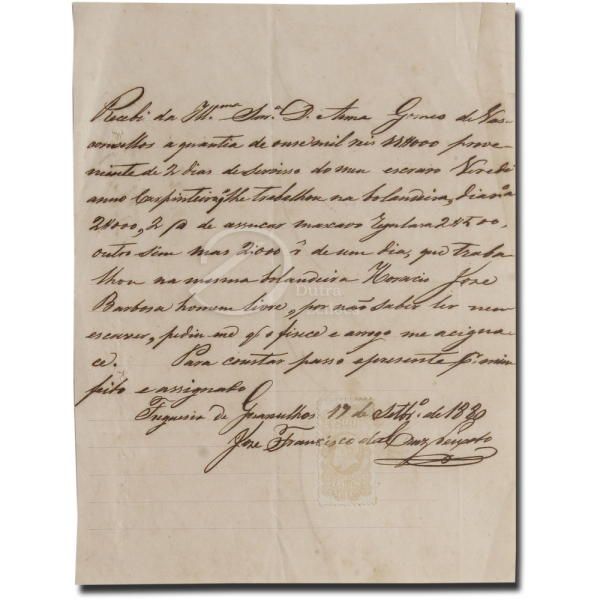 Recebi da Ill.ma Snr.ª D. Anna Gomes de Vas-
concellos a quantia de onse mil reis 11#000 prove-
niente de 2 dias de servisso do meu escravo
anno Carpinteiro, q lhe trabalhou na bolandeira, diaria
2#000, 2 @ de assucar mascavo 2#500,
outro sim mas 2:000 r.s de um dia, que traba-
lhou na mesma bolandeira Horacio Jose
Barbosa homem livre, por não saber ler nem
escrever, pedio me q o fisece e arogo me acigna-
ce. Para constar passo epresente p. mim
feito e assignado
Freguesia de 17 de Setbr.º de 1880
Jose Francisco da Cruz Peixoto
Dutra
Leilões